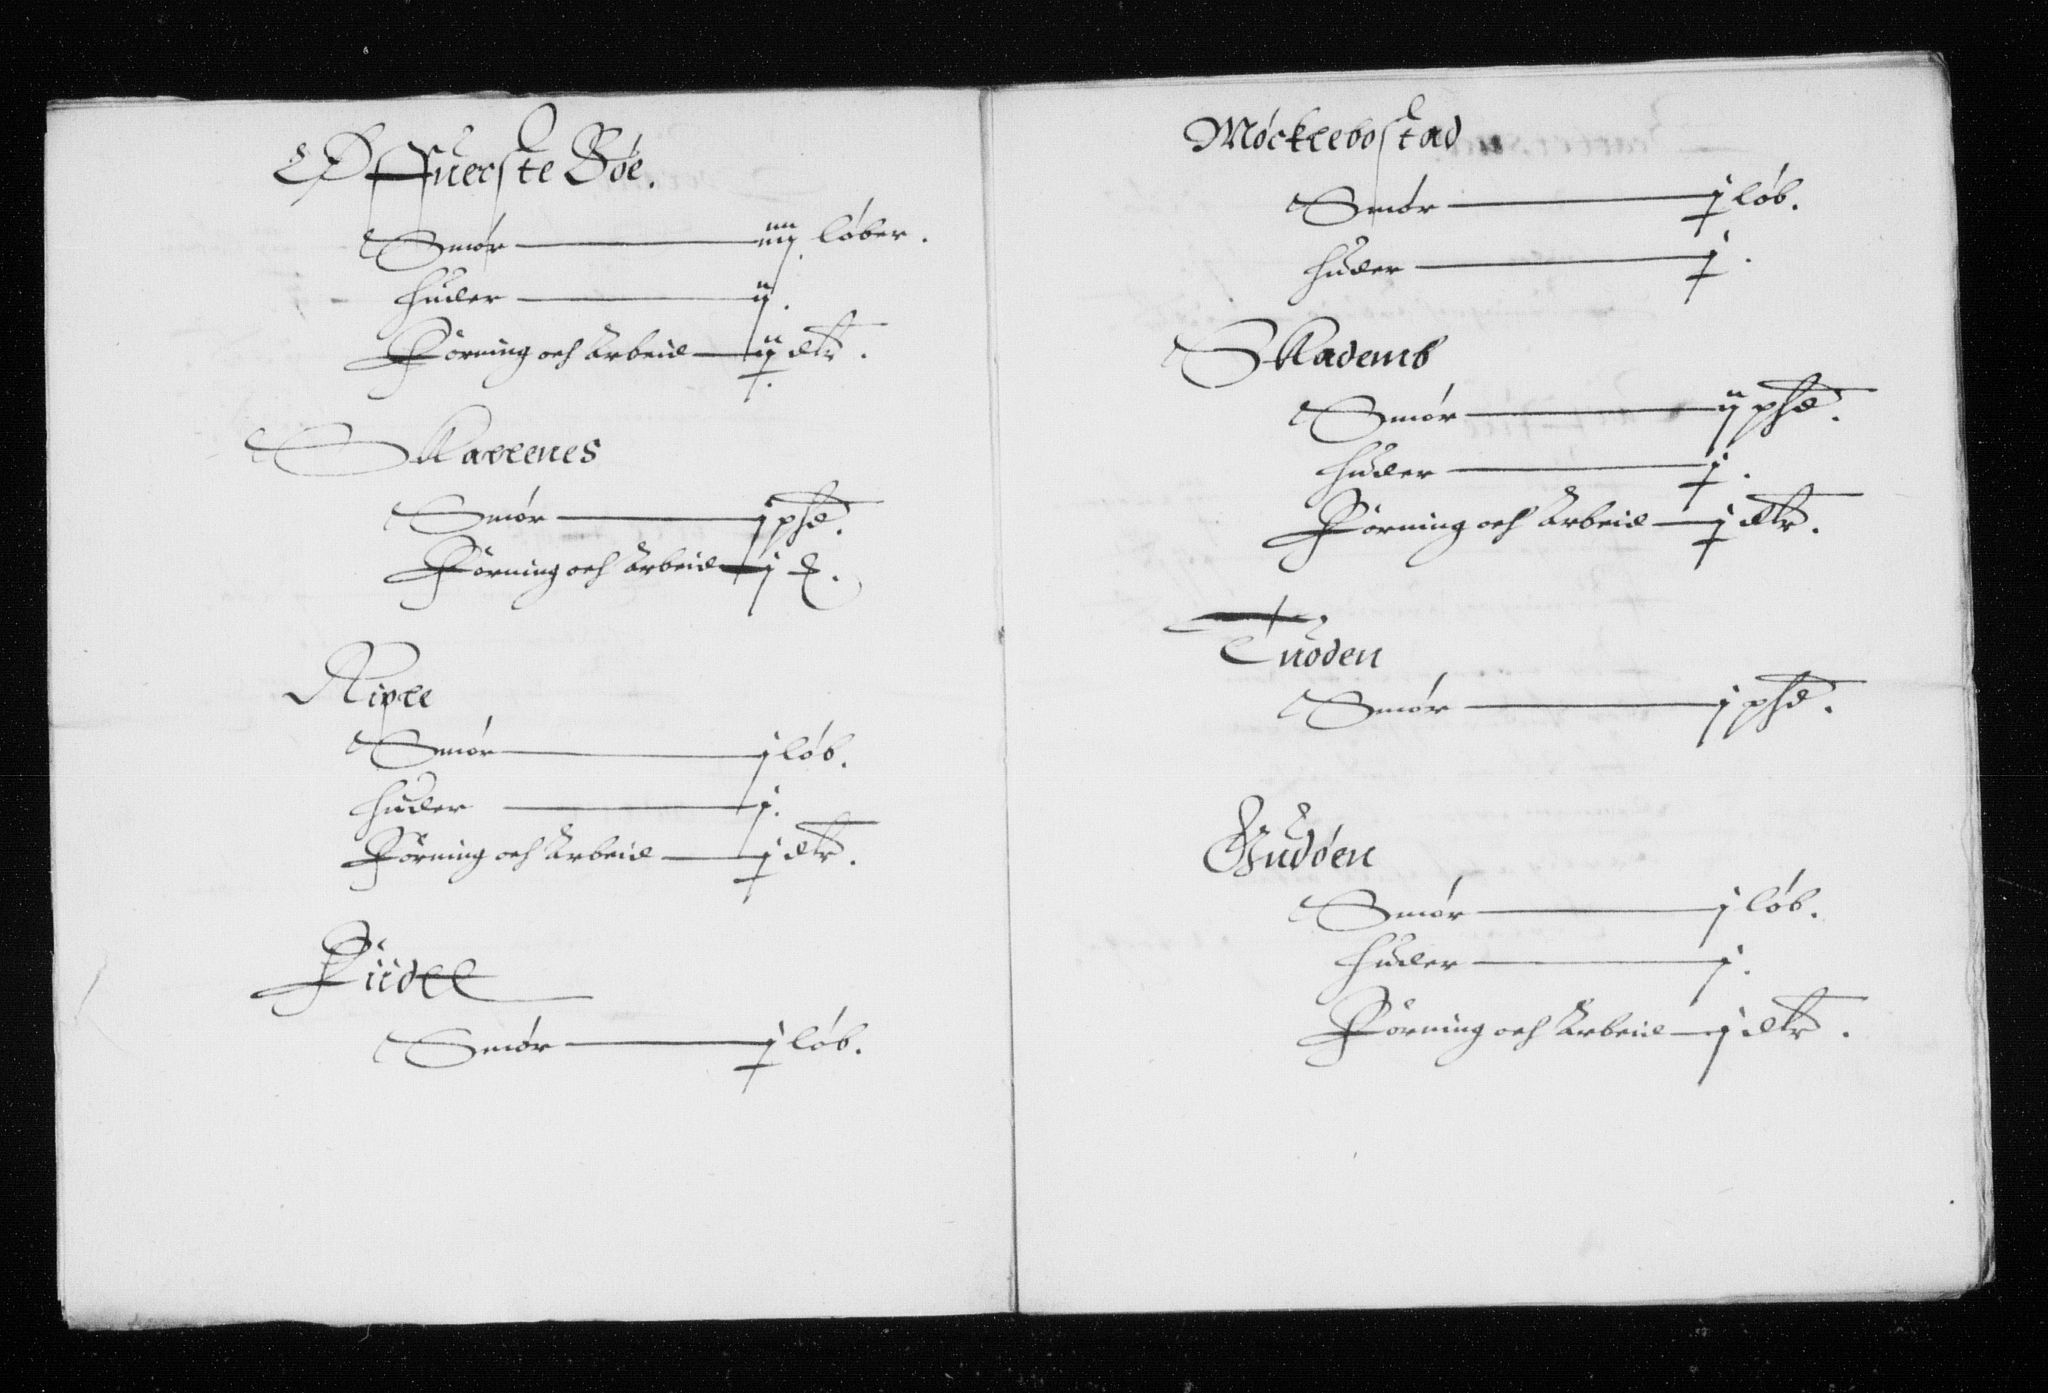 Øffuerste Bøe.
Smør iiij løber.
Huder ij.
Förning och Arbeid ij dlr.
Skallenes
Smør j phd.
Förning och Arbeid j
Riple
Smør j løb.
Huder j.
Förning och Arbeid j dlr.
Smør j løb.
Møcklebostad
Smør j løb.
Huder j.
Skadems
Smør ij phd.
Huder j.
Förning och Arbeid j dlr.
Tuoden
Smør j phd.
Gudøen
Smør j løb.
Huder j.
Förning och Arbeid j dlr.